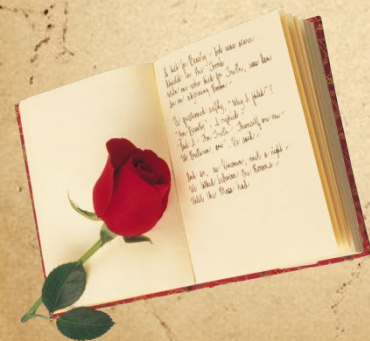 I died for Beauty - but was scarce
Adjusted in the Tomb
When one who died for Truth, was lain
In an adjoining Room -
He questioned softly, "Why I failed"?
"For Beauty", I replied -
"And I - for Truth - Themself are one -
We Brethren are", He said -
And so, as Kinsmen, met a night -
We talked between the Rooms -
Until the Moss had